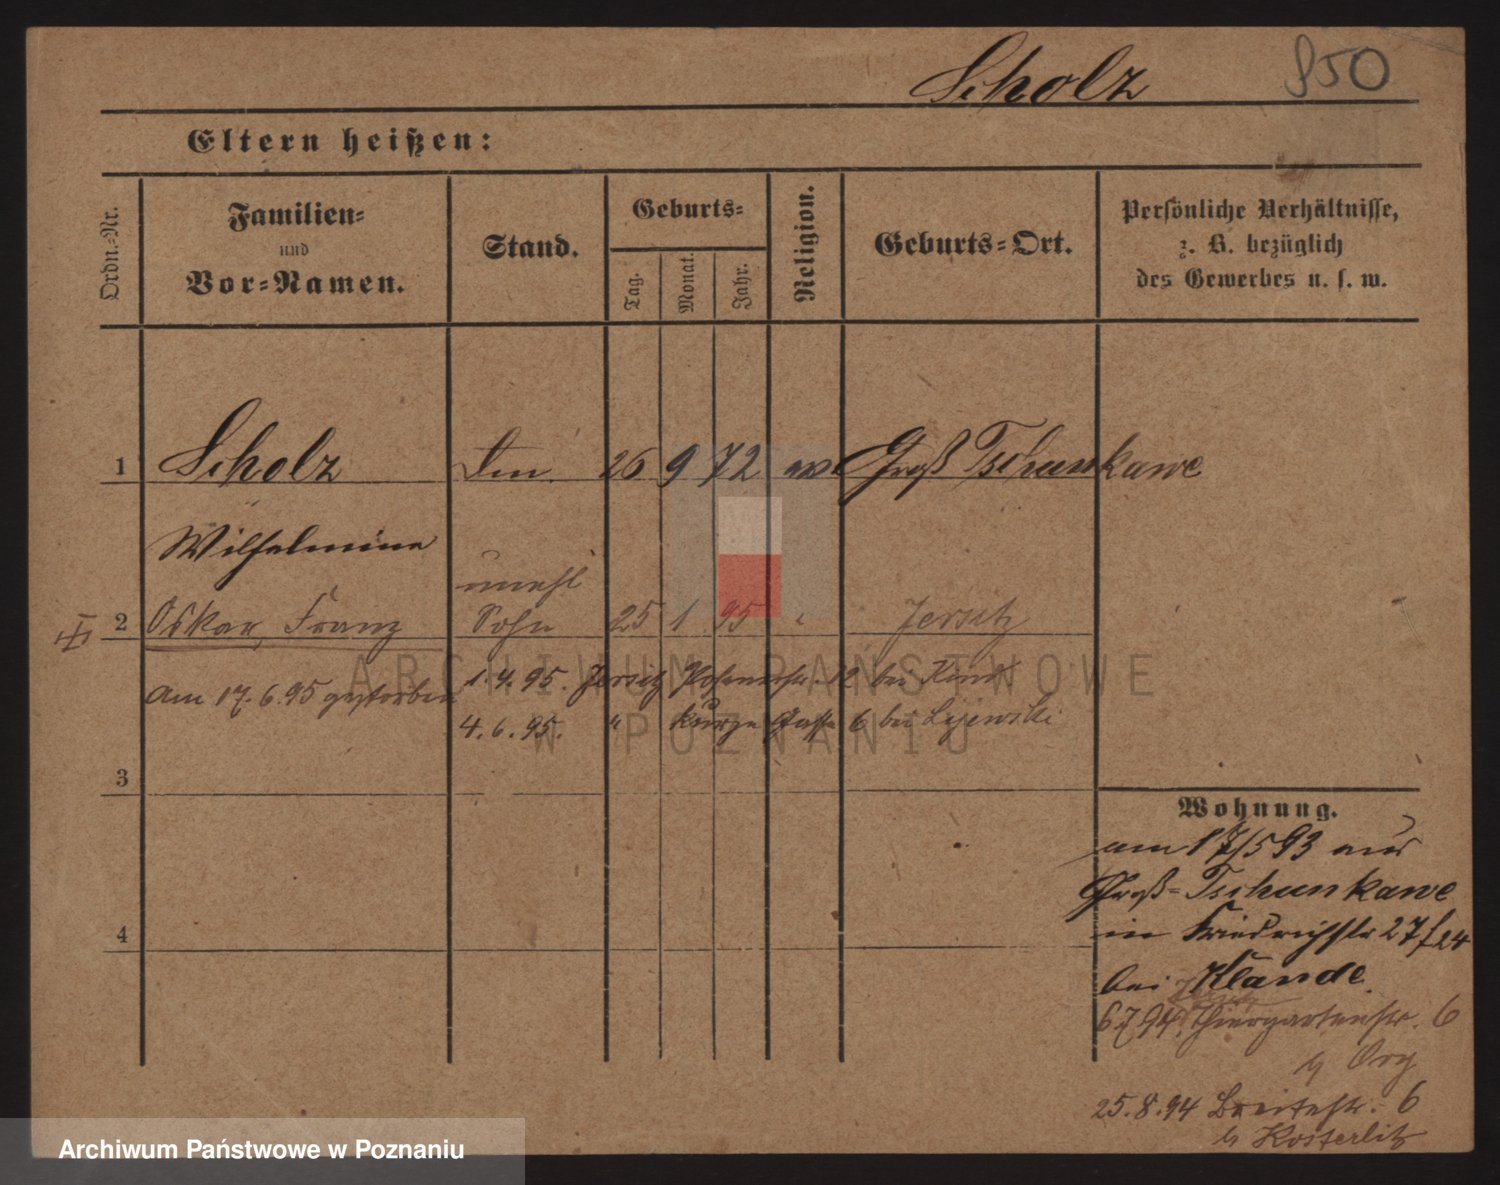 Scholz 950
Eltern heißen:
Ordn.-Nr.
Familien-
und
Vor-Namen.
Stand.
Geburts-
Tag.
Monat.
Jahr.
Religion.
Geburts-Ort.
Persönliche Verhältnisse,
z. B. bezüglich
des Gewerbes u. s. w.
1 Scholz 26 9 72 Groß Tschunkawe
Wilhelmine
unehl
2 Oskar, Franz Sohn 25 1 95 " Jersitz
am 17.6.95 gestorben
1.4.95. Jersitz Posenerstr. 12 bei Kind
4.6.95. " Kurze Gasse 6 bei Lijewski
3
4
Wohnung.
am 17/5 93 aus
Groß-Tschunkawe
in Friedrichstr 27/24
bei Klande.
Jersitz
6 7 94. Thiergartenstr. 6
b Org
25.8.94 Breitestr. 6
b Kosterlitz
ARCHIWUM PAŃSTWOWE
W POZNANIU
Archiwum Państwowe w Poznaniu